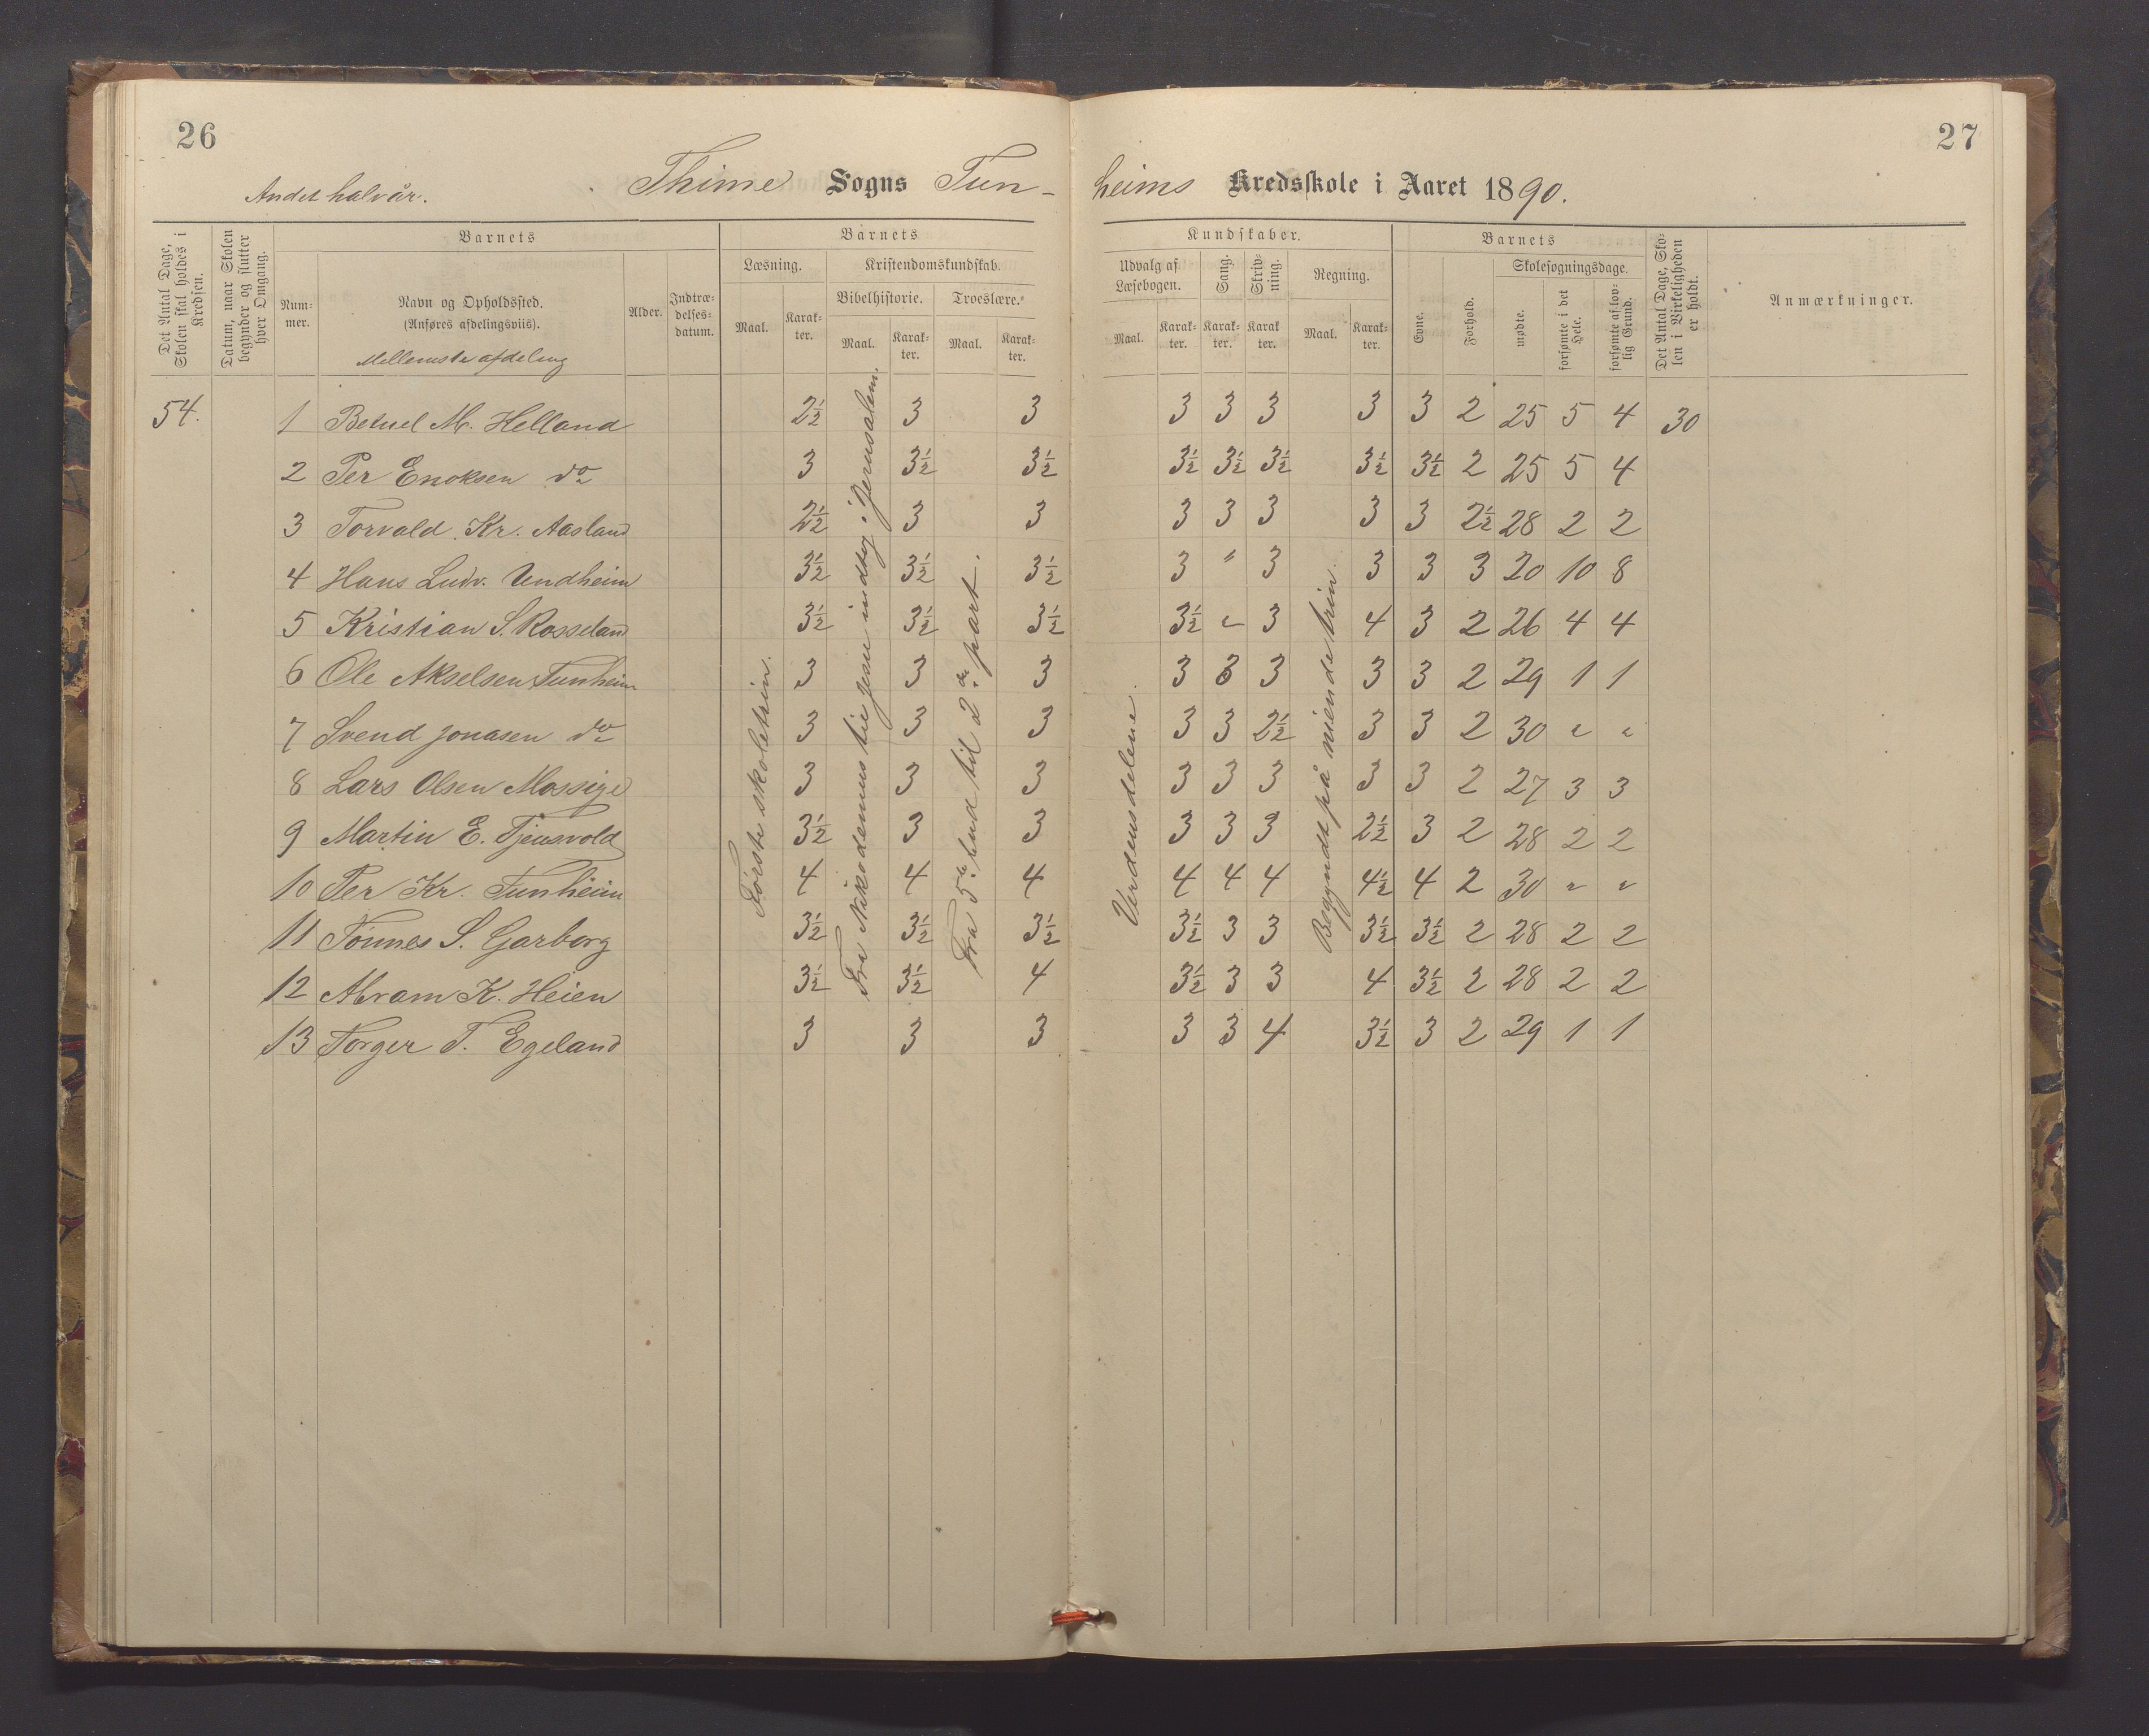 26
27
Andet halvår.
Thime Sogns Tun-heims Kredsskole i Aaret 1890.
Det Antal Dage, Skolen skal holdes i Kredsen.
Datum, naar Skolen begynder og slutter hver Omgang.
Barnets
Nummer.
Navn og Opholdssted.
(Anføres afdelingsviis).
Mellemste afdeling
Alder.
Indtrædelses-datum.
Barnets
Læsning.
Maal.
Karakter.
Kristendomskundskab.
Bibelhistorie.
Maal.
Karakter.
Troeslære.
Maal.
Karakter.
Kundskaber.
Udvalg af Læsebogen.
Maal.
Karakter.
Sang.
Karakter.
Skrivning.
Karakter.
Regning.
Maal.
Karakter.
Barnets
Evne.
Forhold.
Skolesøgningsdage.
mødte.
forsømte i det Hele.
forsømte af lovlig Grund.
Det Antal Dage, Skolen i Virkeligheden er holdt.
Anmærkninger.
54. 1 Betuel M. Helland 2½ 3 3 3 3 3 3 3 2 25 5 4 30
2 Per Enoksen do 3 3½ 3½ 3½ 3½ 3½ 3½ 3½ 2 25 5 4
3 Torvald Kr. Aasland 2½ 3 3 3 3 3 3 3 2½ 28 2 2
4 Hans Ludv. Undheim 3½ 3½ 3½ 3 " 3 3 3 3 20 10 8
5 Kristian S. Rosseland 3½ 3½ 3½ 3½ " 3 4 3 2 26 4 4
6 Ole Akselsen Tunheim 3 3 3 3 3 3 3 3 2 29 1 1
7 Svend Jonasen do 3 3 3 3 3 2½ 3 3 2 30 " "
8 Lars Olsen Mossige 3 3 3 3 3 3 3 3 2 27 3 3
9 Martin E. Tjensvold 3½ 3 3 3 3 3 2½ 3 2 28 2 2
10 Per Kr. Tunheim 4 4 4 4 4 4 4½ 4 2 30 " "
11 Tønnes S. Garborg 3½ 3½ 3½ 3½ 3 3 3½ 3½ 2 28 2 2
12 Abram K. Heien 3½ 3½ 4 3½ 3 3 4 3½ 2 28 2 2
13 Torger T. Egeland 3 3 3 3 3 4 3½ 3 2 29 1 1
Første skoletrin.
Fra Nikodemus til Jesu indtog i Jerusalem.
Fra 5te bud til 2den part.
Verdensdelene.
Begyndt på niende trin.